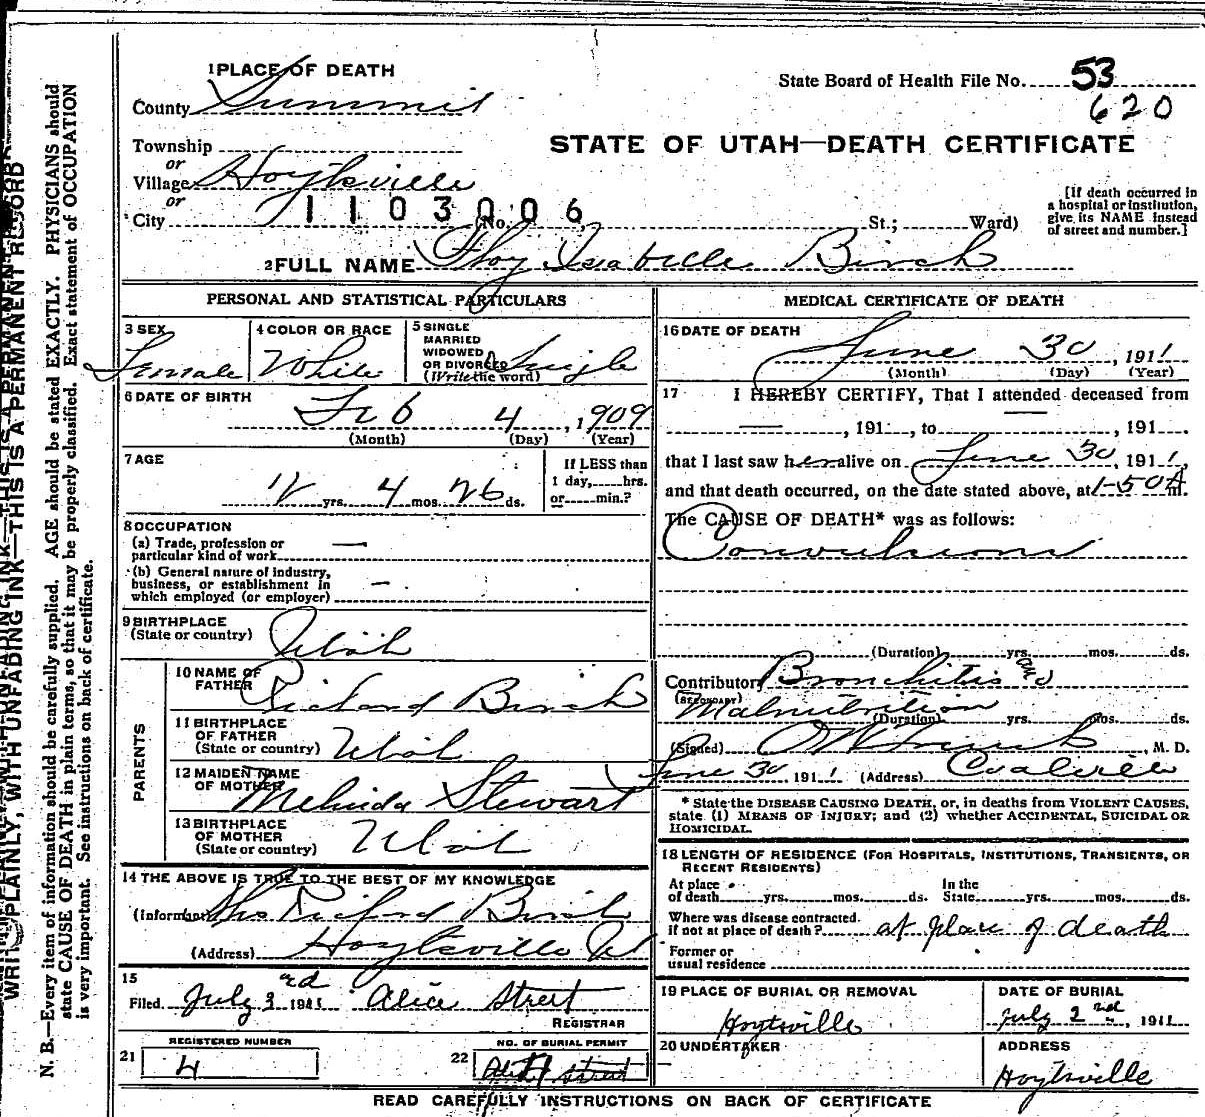 1 PLACE OF DEATH
State Board of Health File No. 53
620
County Summit
STATE OF UTAH—DEATH CERTIFICATE
Township
or
Village Hoytsville
or
City
1103006
(No. St.; Ward)
[If death occurred in
a hospital or institution,
give its NAME instead
of street and number.]
2 FULL NAME Floy Isabelle Birch
PERSONAL AND STATISTICAL PARTICULARS
3 SEX
Female
4 COLOR OR RACE
White
5 SINGLE
MARRIED
WIDOWED
OR DIVORCED
(Write the word)
Single
6 DATE OF BIRTH
Feb 4, 1909
(Month) (Day) (Year)
7 AGE
yrs. 4 mos. 26 ds.
If LESS than
1 day, hrs.
or min.?
8 OCCUPATION
(a) Trade, profession or
particular kind of work —
(b) General nature of industry,
business, or establishment in
which employed (or employer) —
9 BIRTHPLACE
(State or country)
Utah
PARENTS
10 NAME OF
FATHER
Richard Birch
11 BIRTHPLACE
OF FATHER
(State or country)
Utah
12 MAIDEN NAME
OF MOTHER
Melinda Stewart
13 BIRTHPLACE
OF MOTHER
(State or country)
Utah
14 THE ABOVE IS TRUE TO THE BEST OF MY KNOWLEDGE
(Informant) Birch
(Address) Hoytsville
15
Filed July 3rd 1911 Alice Street
REGISTRAR
21
REGISTERED NUMBER
4
22
NO. OF BURIAL PERMIT
4
Alice Street
MEDICAL CERTIFICATE OF DEATH
16 DATE OF DEATH
June 30, 1911
(Month) (Day) (Year)
17 I HEREBY CERTIFY, That I attended deceased from
—, 191 , to —, 191
that I last saw her alive on June 30, 1911,
and that death occurred, on the date stated above, at 1-50 A m.
The CAUSE OF DEATH* was as follows:
Convulsions
(Duration) yrs. mos. ds.
Contributory Bronchitis and
(SECONDARY) Malnutrition
(Duration) yrs. mos. ds.
(Signed) , M. D.
June 30 1911 (Address) Coalville
* State the DISEASE CAUSING DEATH, or, in deaths from VIOLENT CAUSES,
state (1) MEANS OF INJURY; and (2) whether ACCIDENTAL, SUICIDAL OR
HOMICIDAL.
18 LENGTH OF RESIDENCE (FOR HOSPITALS, INSTITUTIONS, TRANSIENTS, OR
RECENT RESIDENTS)
At place
of death yrs. mos. ds.
In the
State yrs. mos. ds.
Where was disease contracted,
if not at place of death? at place of death
Former or
usual residence
19 PLACE OF BURIAL OR REMOVAL
Hoytsville
DATE OF BURIAL
July 2nd, 1911
20 UNDERTAKER
—
ADDRESS
Hoytsville
READ CAREFULLY INSTRUCTIONS ON BACK OF CERTIFICATE
WRITE PLAINLY, WITH UNFADING INK—THIS IS A PERMANENT RECORD
N. B.—Every item of information should be carefully supplied. AGE should be stated EXACTLY. PHYSICIANS should
state CAUSE OF DEATH in plain terms, so that it may be properly classified. Exact statement of OCCUPATION
is very important. See instructions on back of certificate.